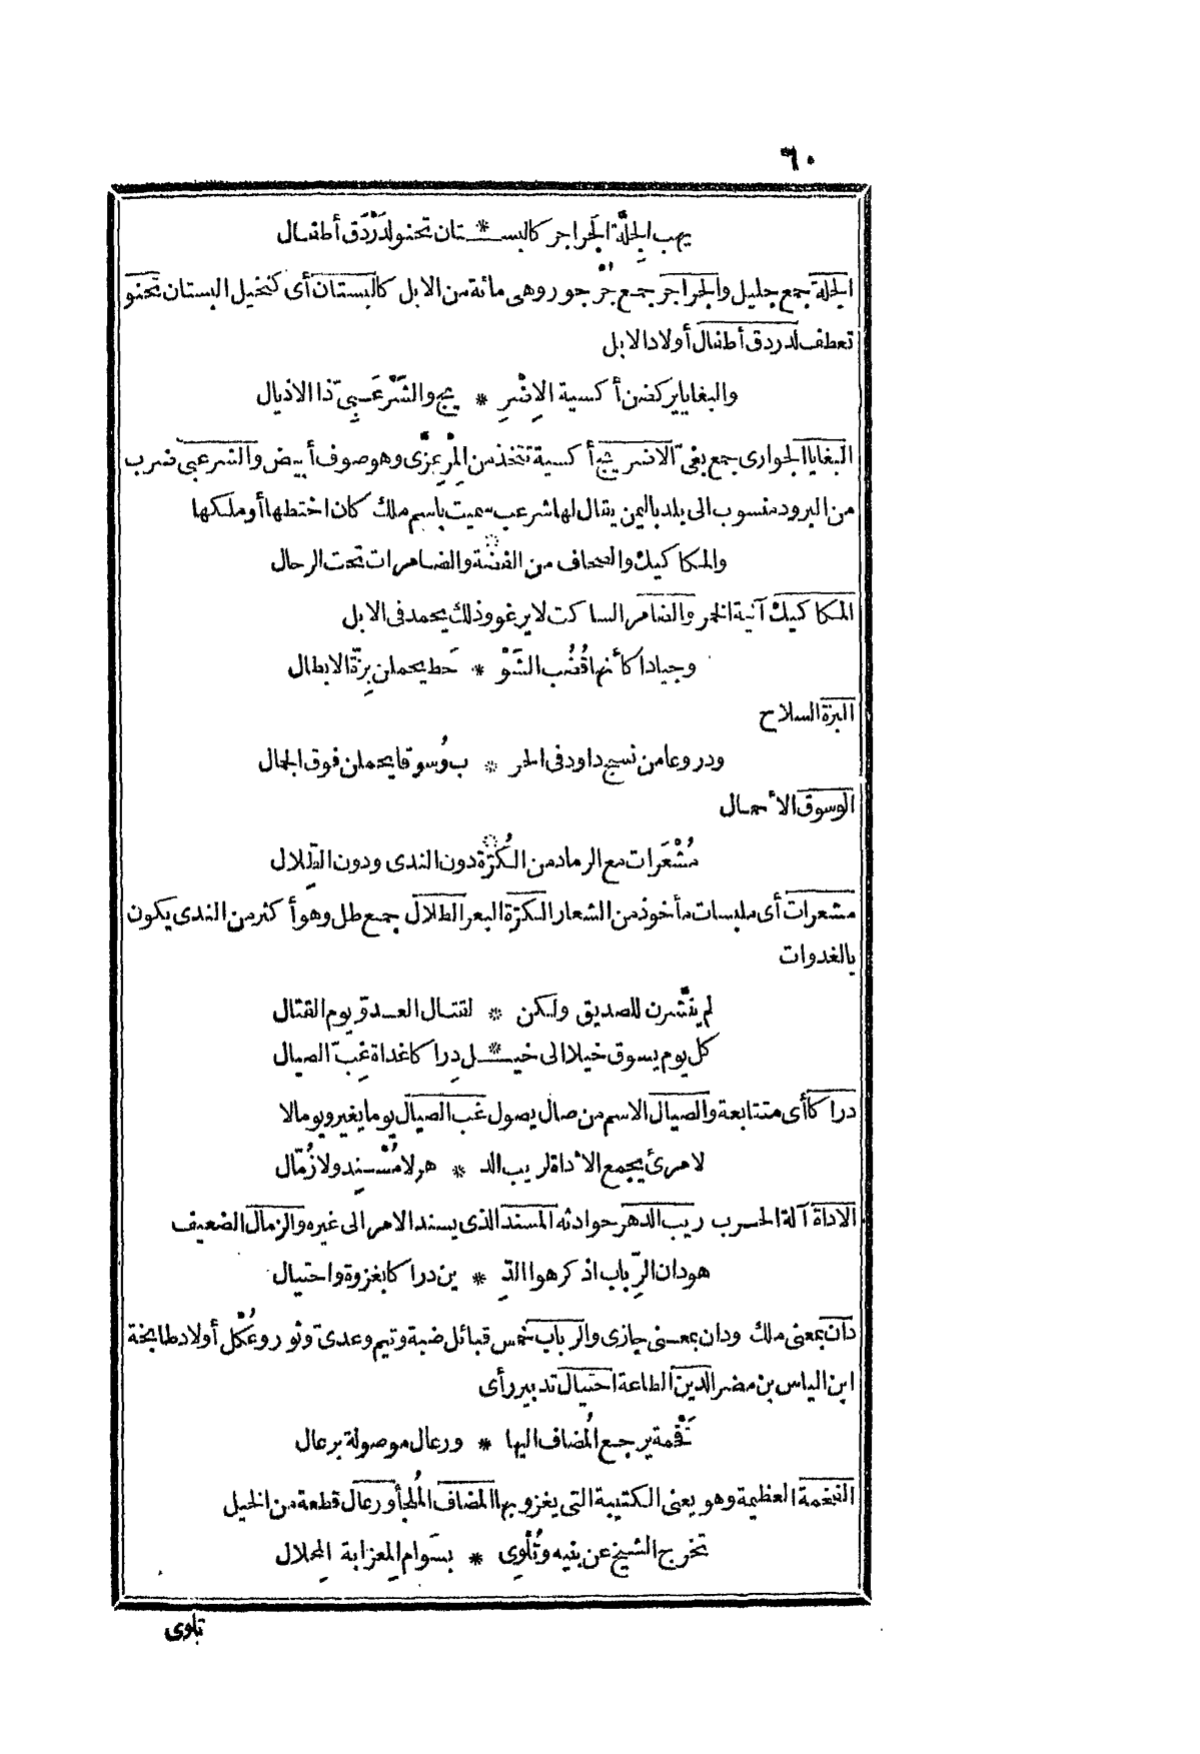 ٦٠
يهب الجِلَّة الجَراجر كالبســ * ـتان تحنو لدَرْدَق أطفال
الجلة جمع جليل والجراجر جمع جُرْجور وهى مائة من الابل كالبستان أى كنخيل البستان تحنو
تعطف لدردق أطفال أولاد الابل
والبغايا يركضن أكسية الاِضْرِ * يج والشَّرْعَبِىّ ذا الاذيال
البغايا الجوارى جمع بغىّ الاضريج أكسية تتخذ من المِرْعِزَّى وهو صوف أبيض والشرعبى ضرب
من البرود منسوب الى بلد باليمن يقال لها شرعب سميت باسم ملك كان اختطها أو ملكها
والمكاكيك والصحاف من الفضـ * ـة والضامرات تحت الرحال
المكاكيك آنية الخمر والضامر الساكت لا يرغو وذلك يحمد فى الابل
وجيادا كأنها قُضُب الشَّوْ * حَط يحملن بِزّة الابطال
البزة السلاح
ودروعا من نسج داود فى الحر * ب وُسوقا يحملن فوق الجمال
الوسوق الأحمال
مُشْعَرات مع الرماد من الكُرّ * ة دون الندى ودون الطِّلال
مشعرات أى ملبسات مأخوذ من الشعار الكرة البعر الطلال جمع طل وهو أكثر من الندى يكون
بالغدوات
لم يَنْشَّرن للصديق ولكن * لقتال العــدوّ يوم القتال
كل يوم يسوق خيلا الى خيــ * ـل دِراكا غداة غِبّ الصيال
دراكا أى متتابعة والصيال الاسم من صال يصول غب الصيال يوما يغير ويوما لا
لامرئ يجمع الأداة لريب الد * هر لا مُسْنِد ولا زُمّال
الاداة آلة الحرب ريب الدهر حوادثه المسند الذى يسند الامر الى غيره والزمال الضعيف
هو دان الرِّباب اذ كرهوا الدِّ * ين دراكا بغزوة واحتيال
دان بمعنى ملك ودان بمعنى جازى والرباب خمس قبائل ضبة وتيم وعدىّ وثور وعُكْل أولاد طابخة
ابن الياس بن مضر الدين الطاعة احتيال تدبير رأى
فَخْمة يرجع المُضاف اليها * ورعال موصولة برعال
الفخمة العظيمة وهو يعنى الكتيبة التى يغزو بها المضاف المُلجأ ورعال قطعة من الخيل
تخرج الشيخ عن بنيه وتُلْوِى * بسَوام المِعزابة المِحلال
تلوى